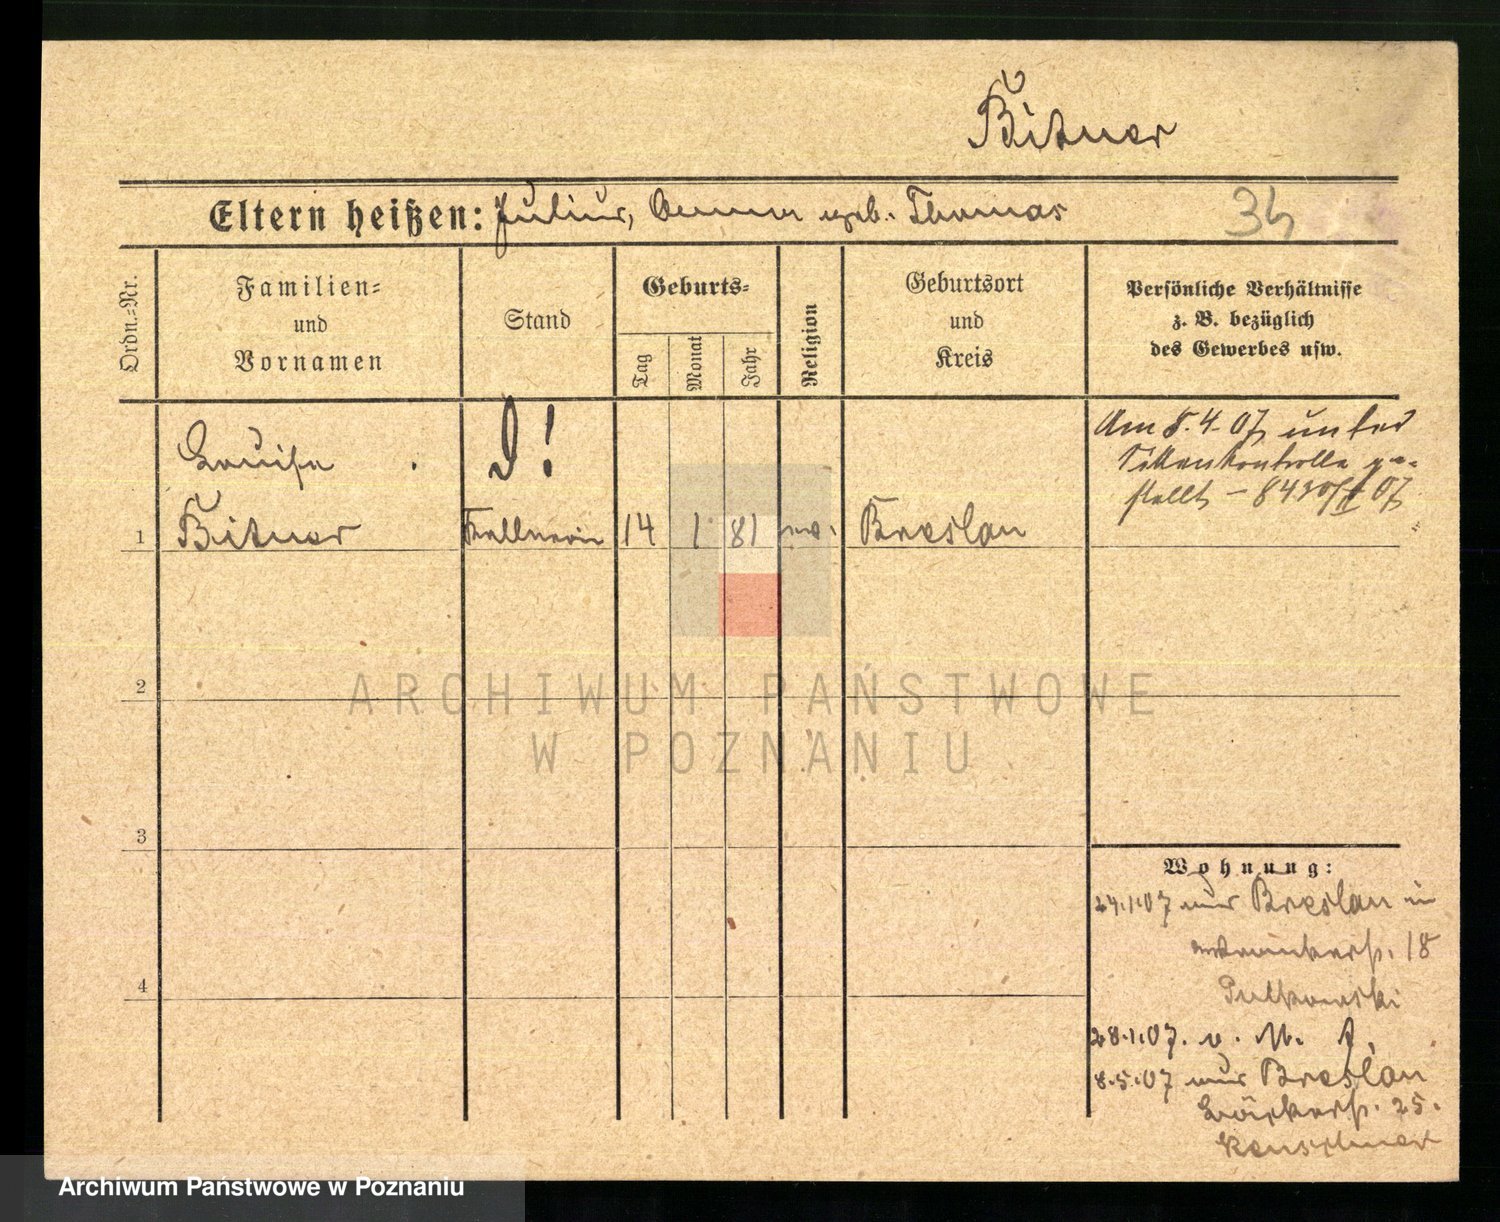 Bitner
Eltern heißen: Julius, Anna geb. Thomas
34
Ordn.-Nr.
Familien-
und
Vornamen
Stand
Geburts-
Tag
Monat
Jahr
Religion
Geburtsort
und
Kreis
Persönliche Verhältnisse
z. B. bezüglich
des Gewerbes usw.
Louise
D!
Am 8.4.07 unter
Sittenkontrolle ge-
stellt - 8430/II 07
1 Bitner Kellnerin 14 1 81 ev. Breslau
2
3
4
Wohnung:
24.1.07 aus Breslau in
18
28.1.07. v. M. A.
8.5.07 aus Breslau
25.
ARCHIWUM PAŃSTWOWE
W POZNANIU
Archiwum Państwowe w Poznaniu